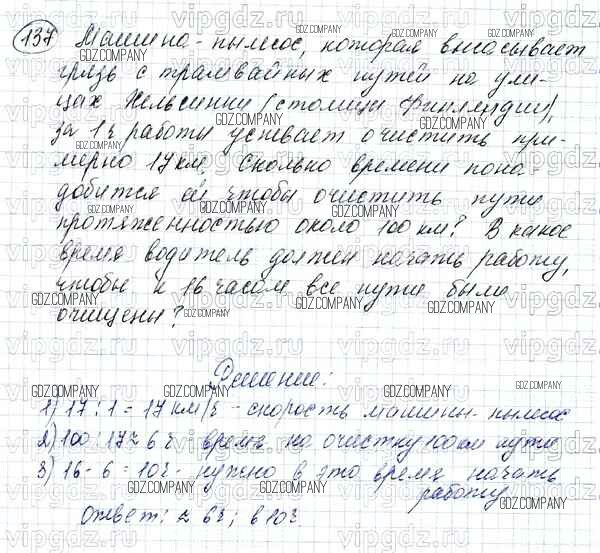 137 Машина-пылесос, которая высасывает
грязь с трамвайных путей на ули-
цах Хельсинки (столицы Финляндии),
за 1 ч работы успевает очистить при-
мерно 17 км. Сколько времени пона-
добится ей чтобы очистить пути
протяженностью около 100 км? В какое
время водитель должен начать работу,
чтобы к 16 часам все пути были
очищены?
Решение:
1) 17 : 1 = 17 км/ч - скорость машины-пылесос
2) 100 : 17 ≈ 6 ч - время на очистку 100 км пути
3) 16 - 6 = 10 ч - нужно в это время начать
работу
Ответ: ≈ 6 ч; в 10 ч